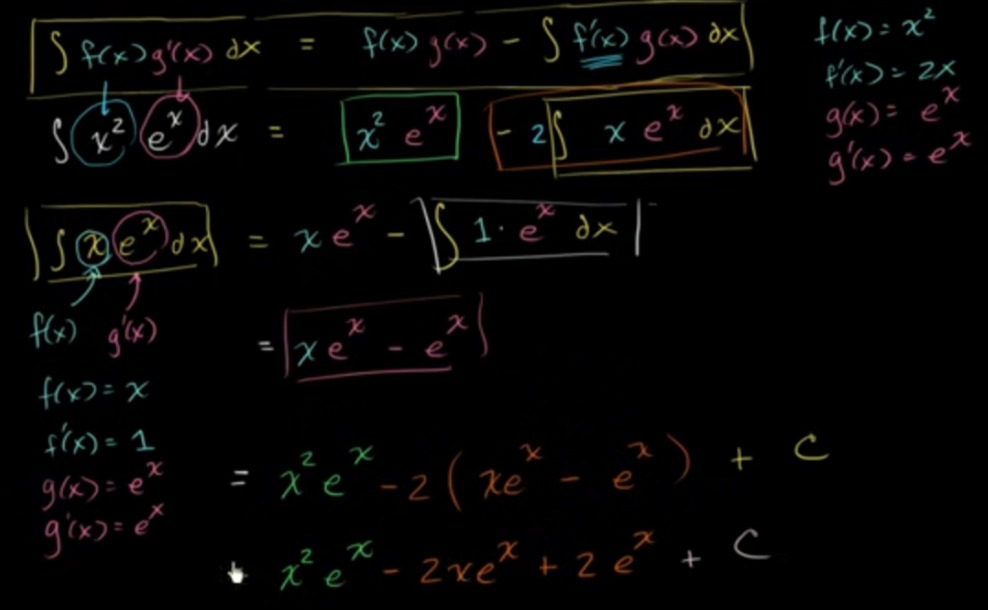 ∫ f(x) g'(x) dx = f(x) g(x) - ∫ f'(x) g(x) dx
∫ x² eˣ dx = x² eˣ - 2 ∫ x eˣ dx
f(x) = x²
f'(x) = 2x
g(x) = eˣ
g'(x) = eˣ
∫ x eˣ dx = x eˣ - ∫ 1 · eˣ dx
f(x) g'(x)
= x eˣ - eˣ
f(x) = x
f'(x) = 1
g(x) = eˣ
g'(x) = eˣ
= x² eˣ - 2 ( xeˣ - eˣ ) + C
x² eˣ - 2xeˣ + 2 eˣ + C